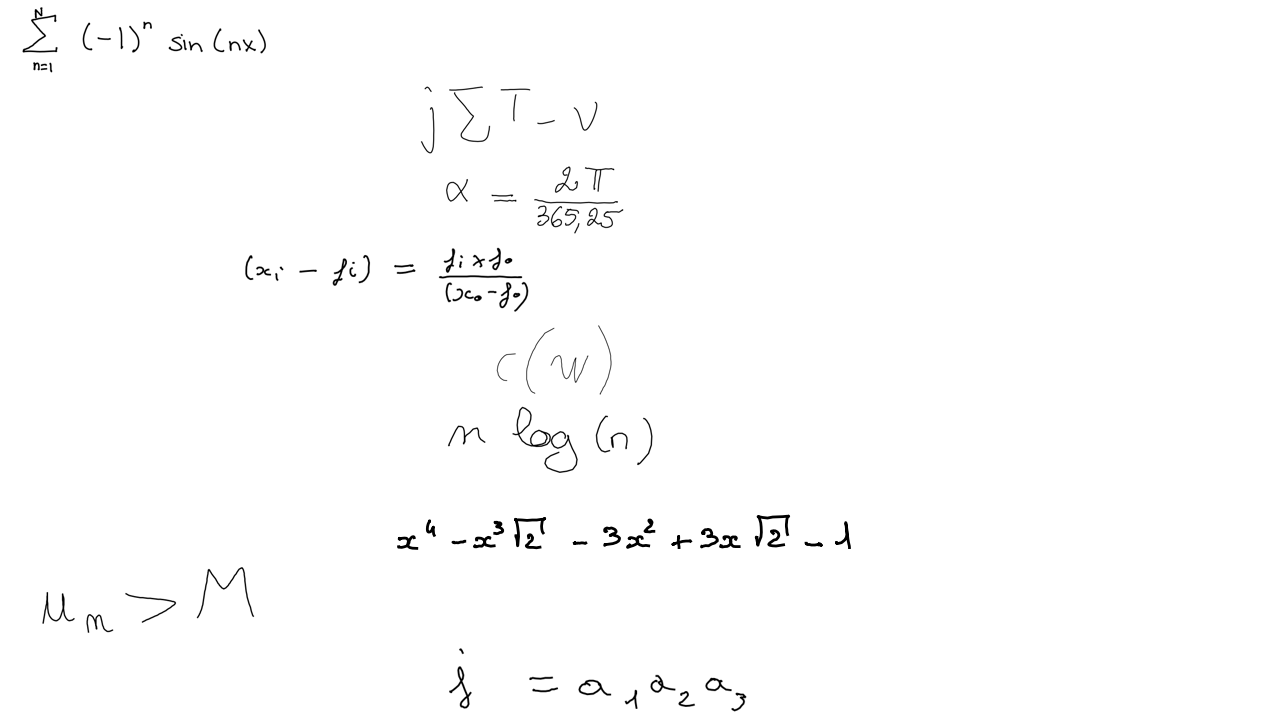 \sum_{n=1}^{N} (-1)^n sin(nx)
j \sum T - v
\alpha = \frac{2\pi}{365,25}
(x_i - f_i) = \frac{f_i \times f_o}{(x_o - f_o)}
c(w)
n log(n)
x^4 - x^3\sqrt{2} - 3x^2 + 3x\sqrt{2} - 1
u_n > M
j = a_1 a_2 a_3